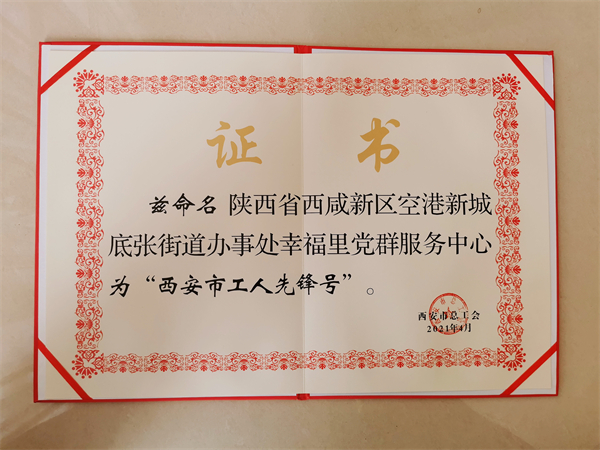 证书
兹命名 陕西省西咸新区空港新城
底张街道办事处幸福里党群服务中心
为“西安市工人先锋号”。
西安市总工会
2021年4月